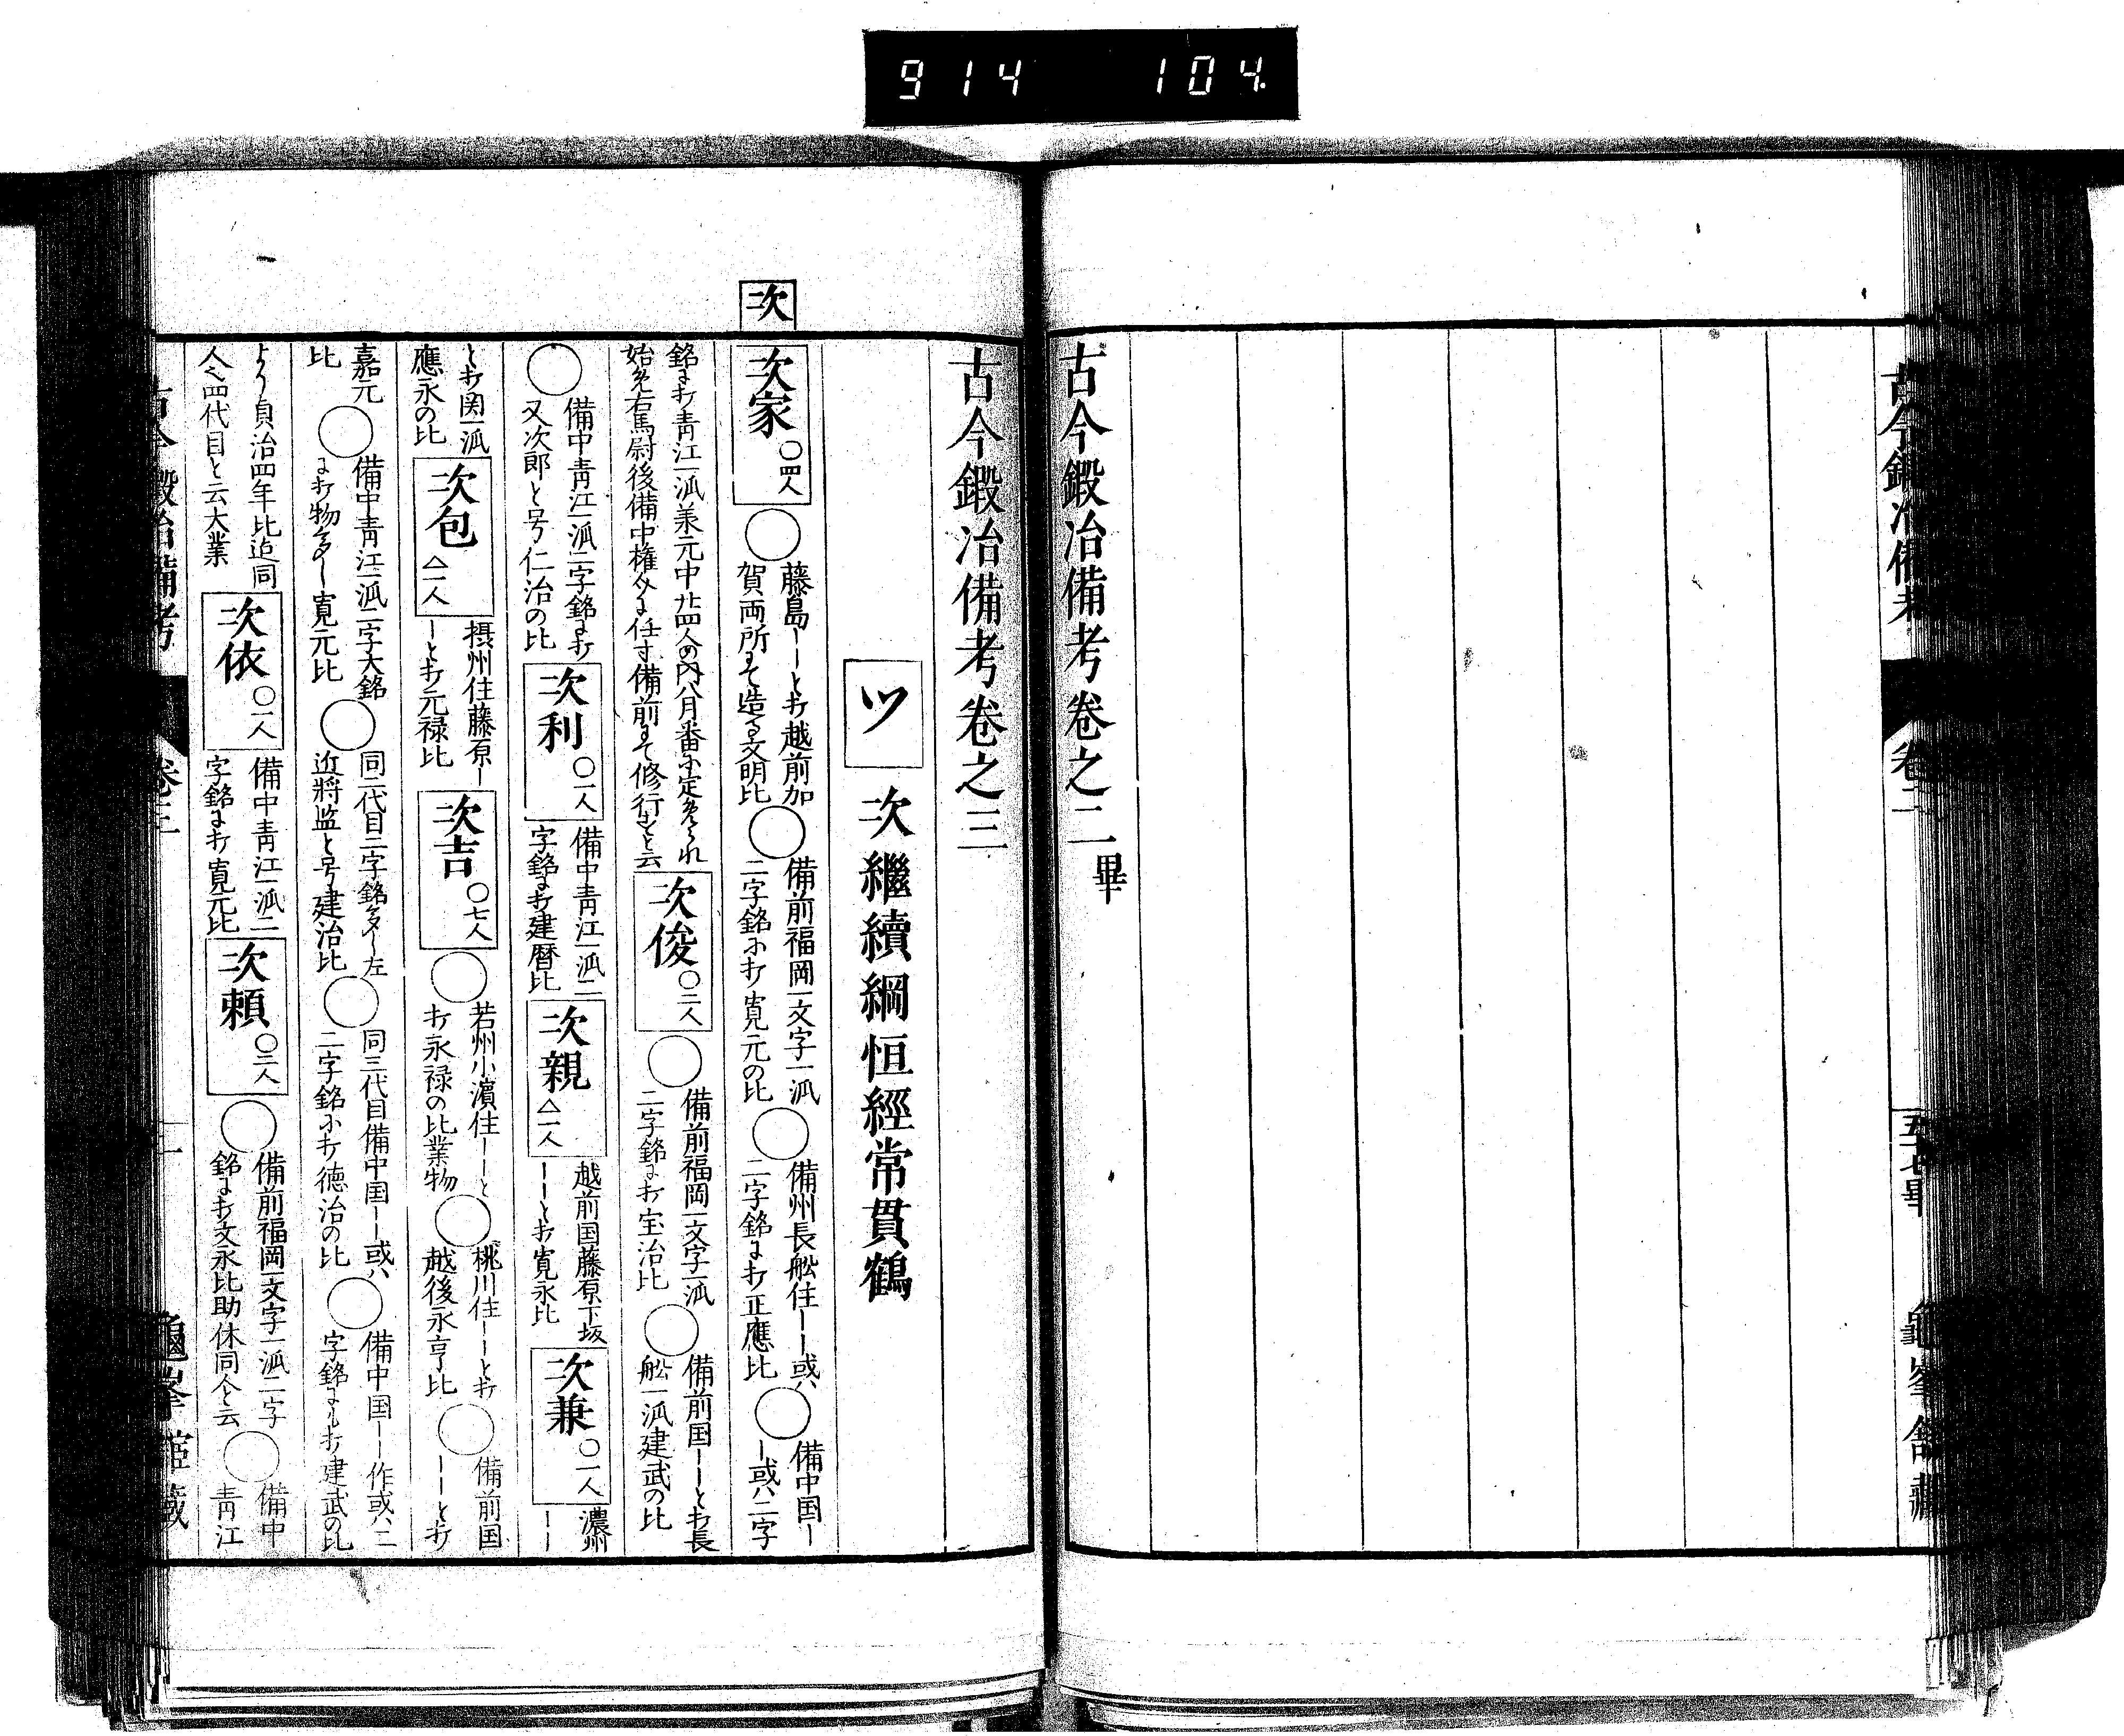 914 104.
古今鍛冶備考
卷二
五十七畢
龜峯館藏
古今鍛冶備考卷之二畢
古今鍛冶備考卷之三
ツ 次繼續綱恒經常貫鶴
次
次家 〇四人
◯藤島ーーと打越前加
賀両所にて造る文明比
◯備前福岡一文字一派
二字銘に打寛元の比
◯備州長舩住ーー或ハ
二字銘に打正應比
◯備中国ー
ー或ハ二字
銘に打青江一派兼元中廿四人の内八月番に定められ
始め右馬尉後備中権介に任す備前にて修行すと云
次俊 〇二人
◯備前福岡一文字一派
二字銘に打宝治比
◯備前国ーーと打長
舩一派建武の比
◯備中青江一派二字銘に打
又次郎と号仁治の比
次利 〇一人
備中青江一派二
字銘に打建暦比
次親 △一人
越前国藤原下坂
ーーと打寛永比
次兼 〇一人
濃州
ーー
と打関一派
應永の比
次包 △一人
摂州住藤原ー
ーと打元禄比
次吉 〇七人
◯若州小濵住ーーと
打永禄の比業物
◯桃川住ーーと打
越後永亨比
◯備前国
ーーと打
嘉元
比
◯備中青江一派二字大銘
に打物多し寛元比
◯同二代目二字銘多し左
近將监と号建治比
◯同三代目備中国ーー或ハ
二字銘に打徳治の比
◯備中国ーー作或ハ二
字銘にも打建武の比
より貞治四年比迄同
人へ四代目と云大業
次依 〇一人
備中青江一派二
字銘に打寛元比
次頼 〇三人
◯備前福岡一文字一派二字
銘に打文永比助休同人と云
◯備中
青江
古今鍛冶備考
卷三
一
龜峯館藏